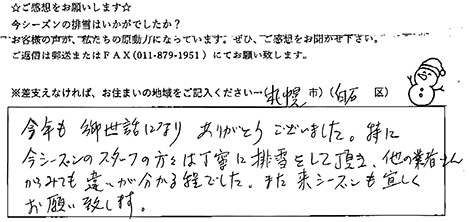 ☆ご感想をお願いします☆
今シーズンの排雪はいかがでしたか？
お客様の声が、私たちの原動力になっています。ぜひ、ご感想をお聞かせ下さい。
ご返信は郵送またはＦＡＸ(011-879-1951）にてお願い致します。
※差支えなければ、お住まいの地域をご記入ください…札幌 市）（白石 区）
今年も御世話になり ありがとうございました。特に
今シーズンのスタッフの方々は丁寧に排雪をして頂き、他の業者さん
からみても 違いが分かる程でした。また来シーズンも宜しく
お願い致します。